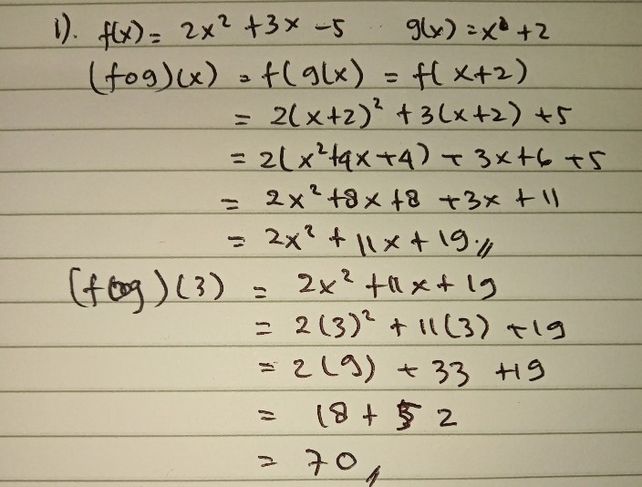 1). f(x) = 2x² + 3x - 5 g(x) = x + 2
(fog)(x) = f(g(x) = f(x+2)
= 2(x+2)² + 3(x+2) + 5
= 2(x²+4x+4) + 3x+6 +5
= 2x² +8x +8 +3x + 11
= 2x² + 11x + 19 //
(fog)(3) = 2x² + 11x + 19
= 2(3)² + 11(3) + 19
= 2(9) + 33 + 19
= 18 + 52
= 70 //